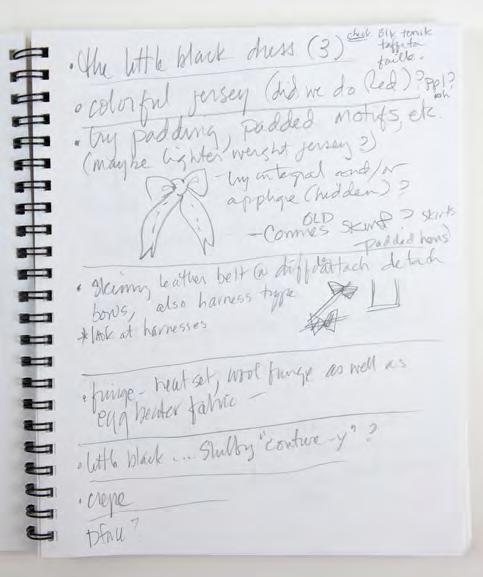 • the little black dress (3) check Blk tenik
taffeta
faille.
• colorful jersey (did we do (red)? ppl?
• try padding, padded motifs, etc.
(maybe lighter weight jersey?)
- try integral and/or
applique (hidden)?
OLD
- Connies skirt skirts
padded hems)
• skinny leather belt @ attach detach
bows, also harness type
* look at harnesses
• fringe - heat set, wool fringe as well as
egg beater fabric -
• little black ... slubby "couture-y"?
• crepe